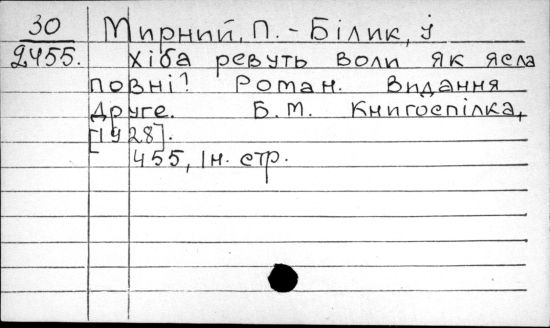 30 Мирний, П. - Білик, І
2455. Хіба ревуть воли як ясла
повні? Роман. Видання
друге. Б.М. Книгоспілка,
[1928].
455, Ін. стр.